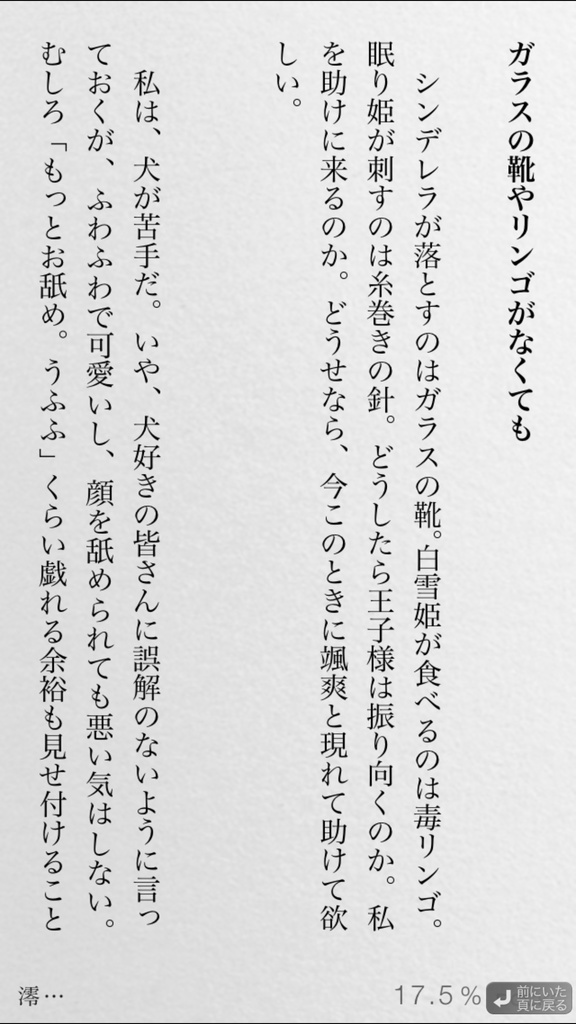 ガラスの靴やリンゴがなくても
シンデレラが落とすのはガラスの靴。白雪姫が食べるのは毒リンゴ。
眠り姫が刺すのは糸巻きの針。どうしたら王子様は振り向くのか。私
を助けに来るのか。どうせなら、今このときに颯爽と現れて助けて欲
しい。
私は、犬が苦手だ。いや、犬好きの皆さんに誤解のないように言っ
ておくが、ふわふわで可愛いし、顔を舐められても悪い気はしない。
むしろ「もっとお舐め。うふふ」くらい戯れる余裕も見せ付けること
澪…
17.5%
前にいた
頁に戻る